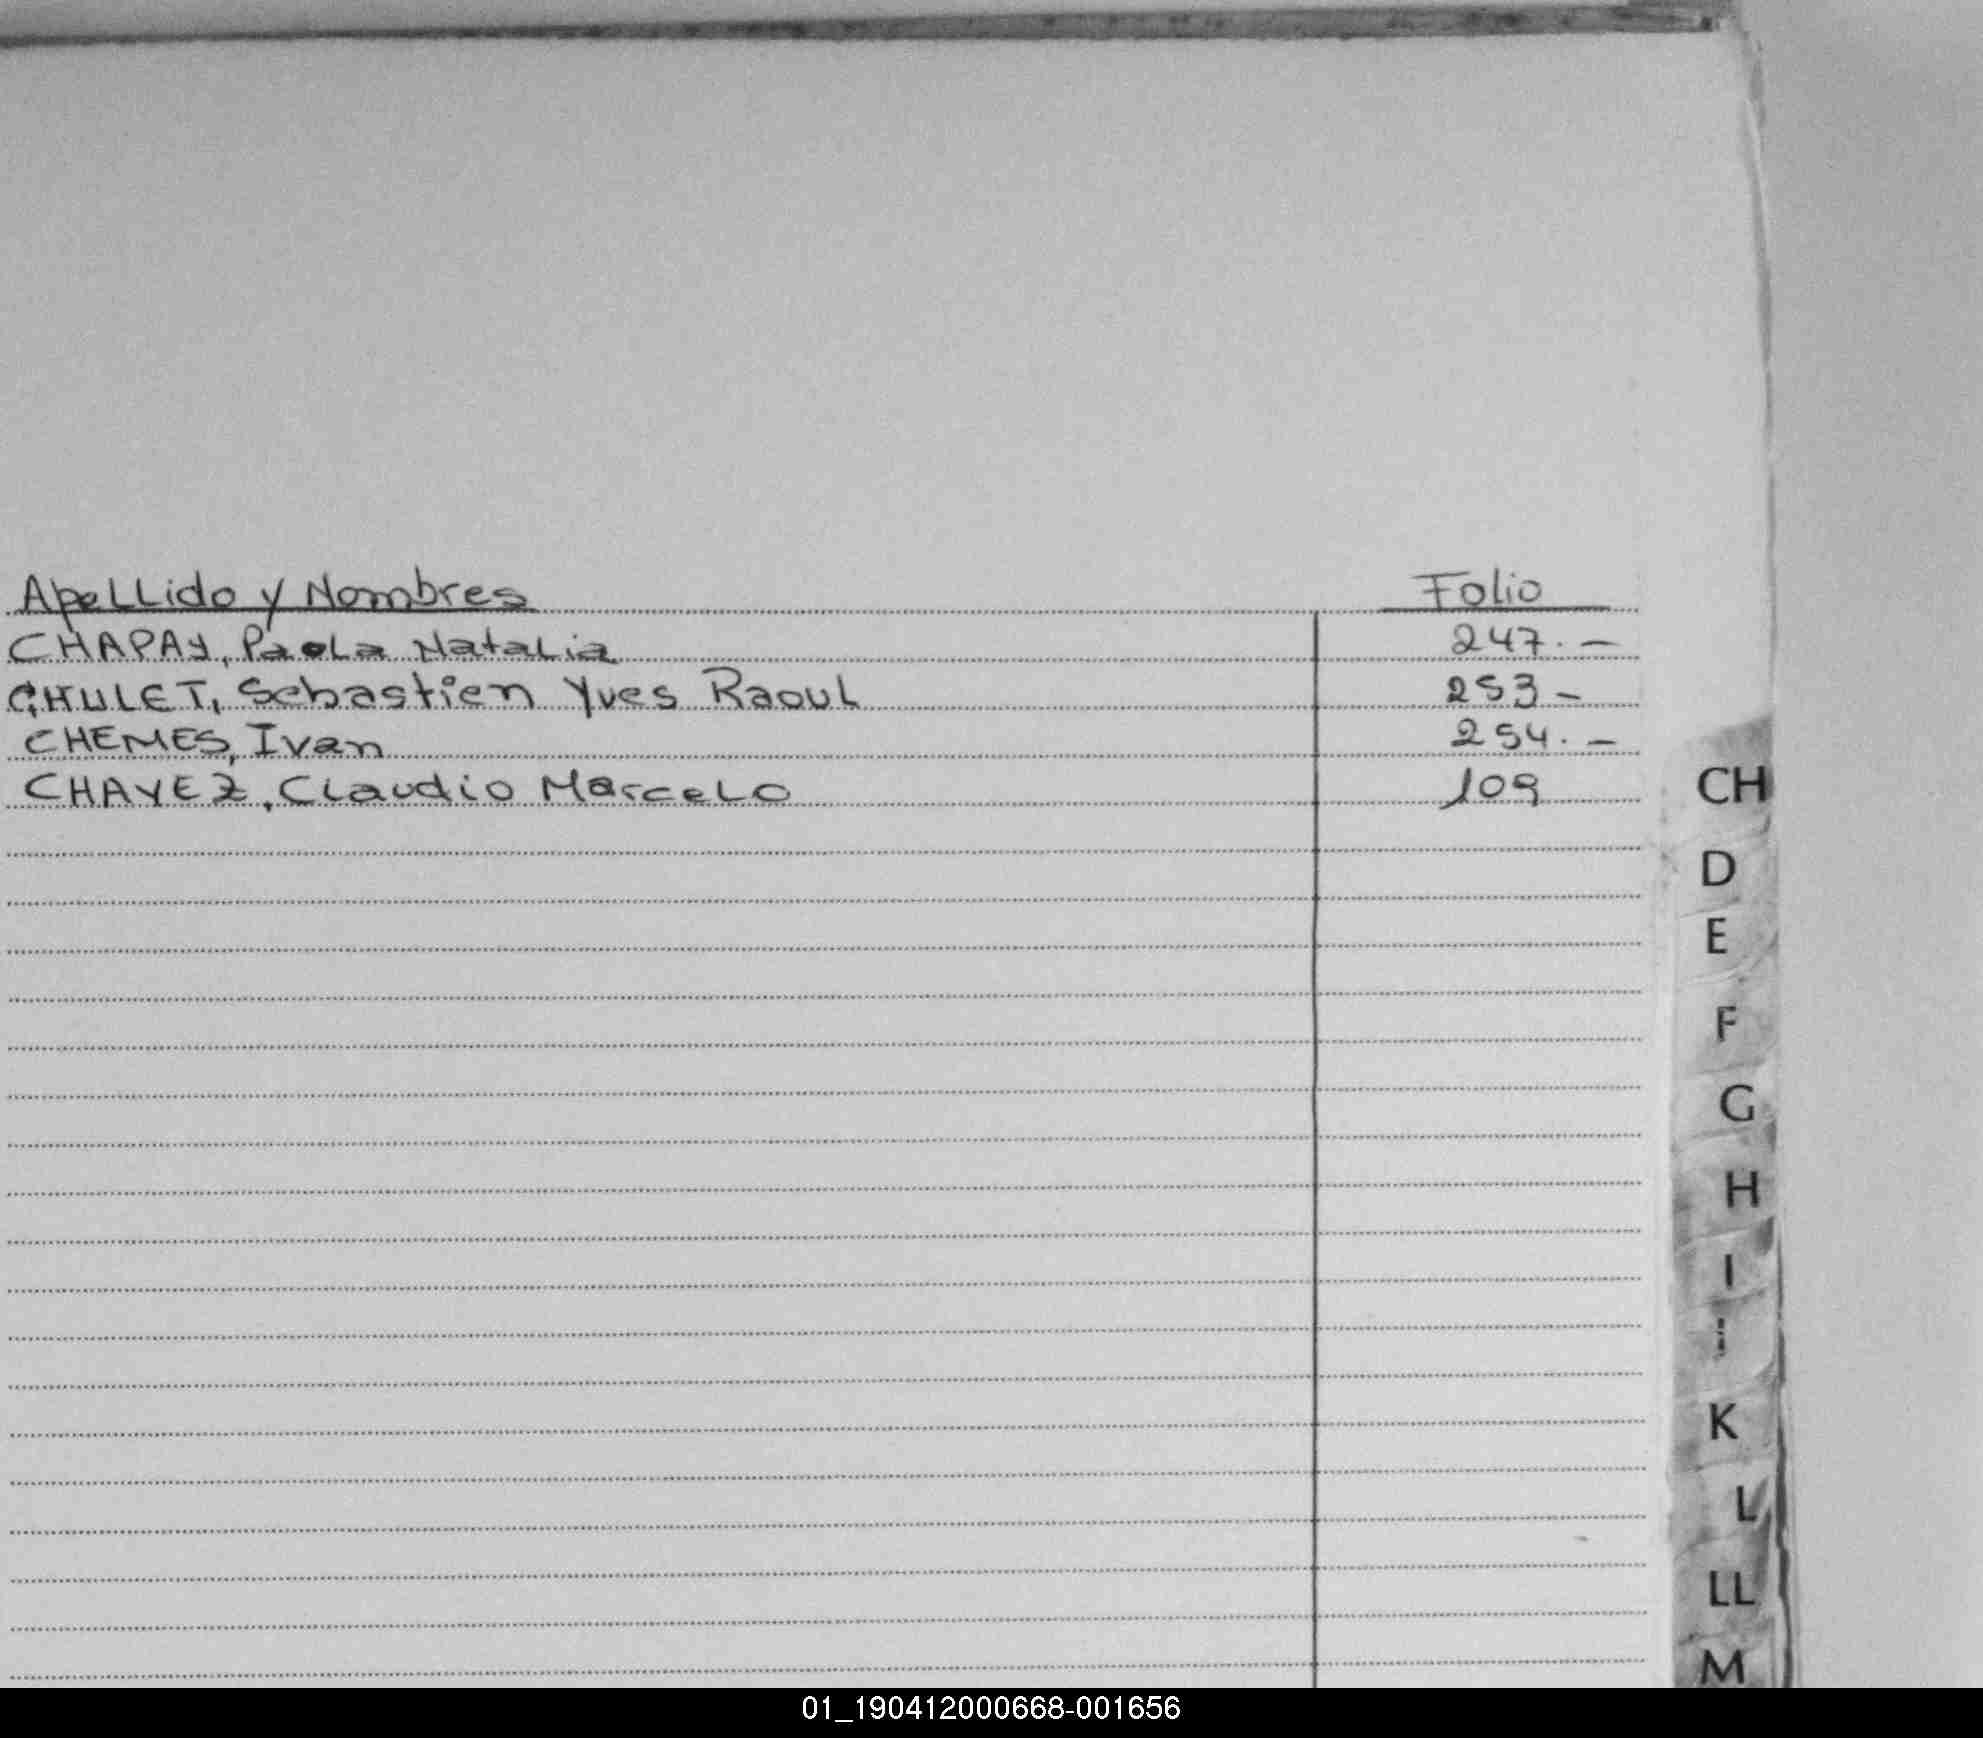 Apellido y Nombres Folio
CHAPAY, Paola Natalia 247.-
CHULET, Sebastien Yves Raoul 253-
CHEMES, Ivan 254.-
CHAVEZ, Claudio Marcelo 109
CH
D
E
F
G
H
I
K
L
LL
M
01_190412000668-001656